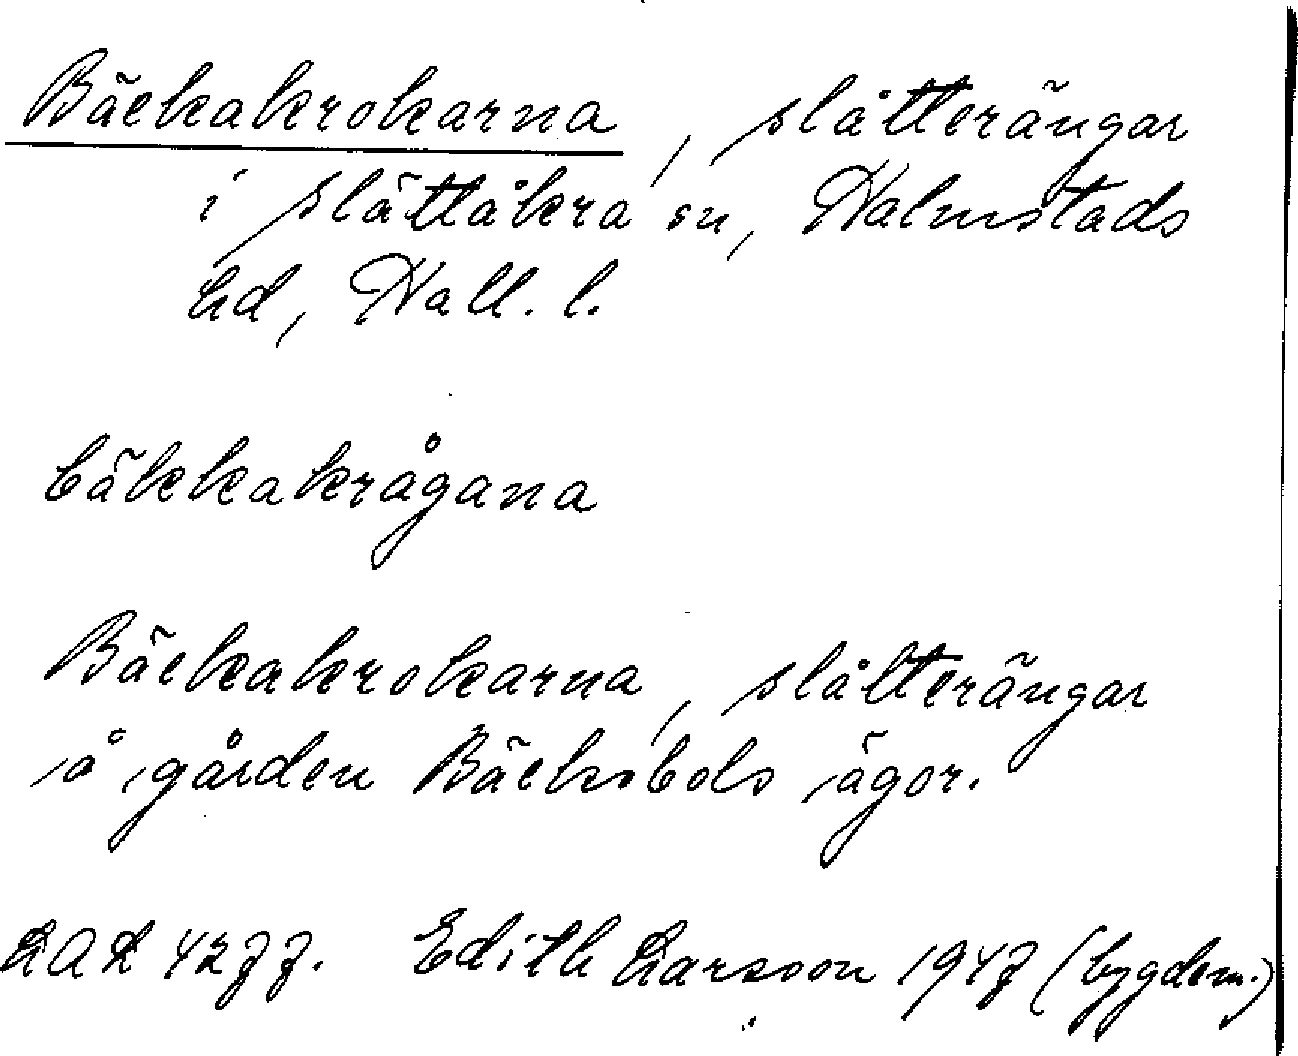 Bäckakrokarna, slåtterängar
i Slättåkra sn, Halmstads
hd, Hall. l.
bäkkakrågana
Bäckakrokarna, slåtterängar
å gården Bäcksbols ägor.
LAL 4277. Edith Larsson 1947 (bygdem.)